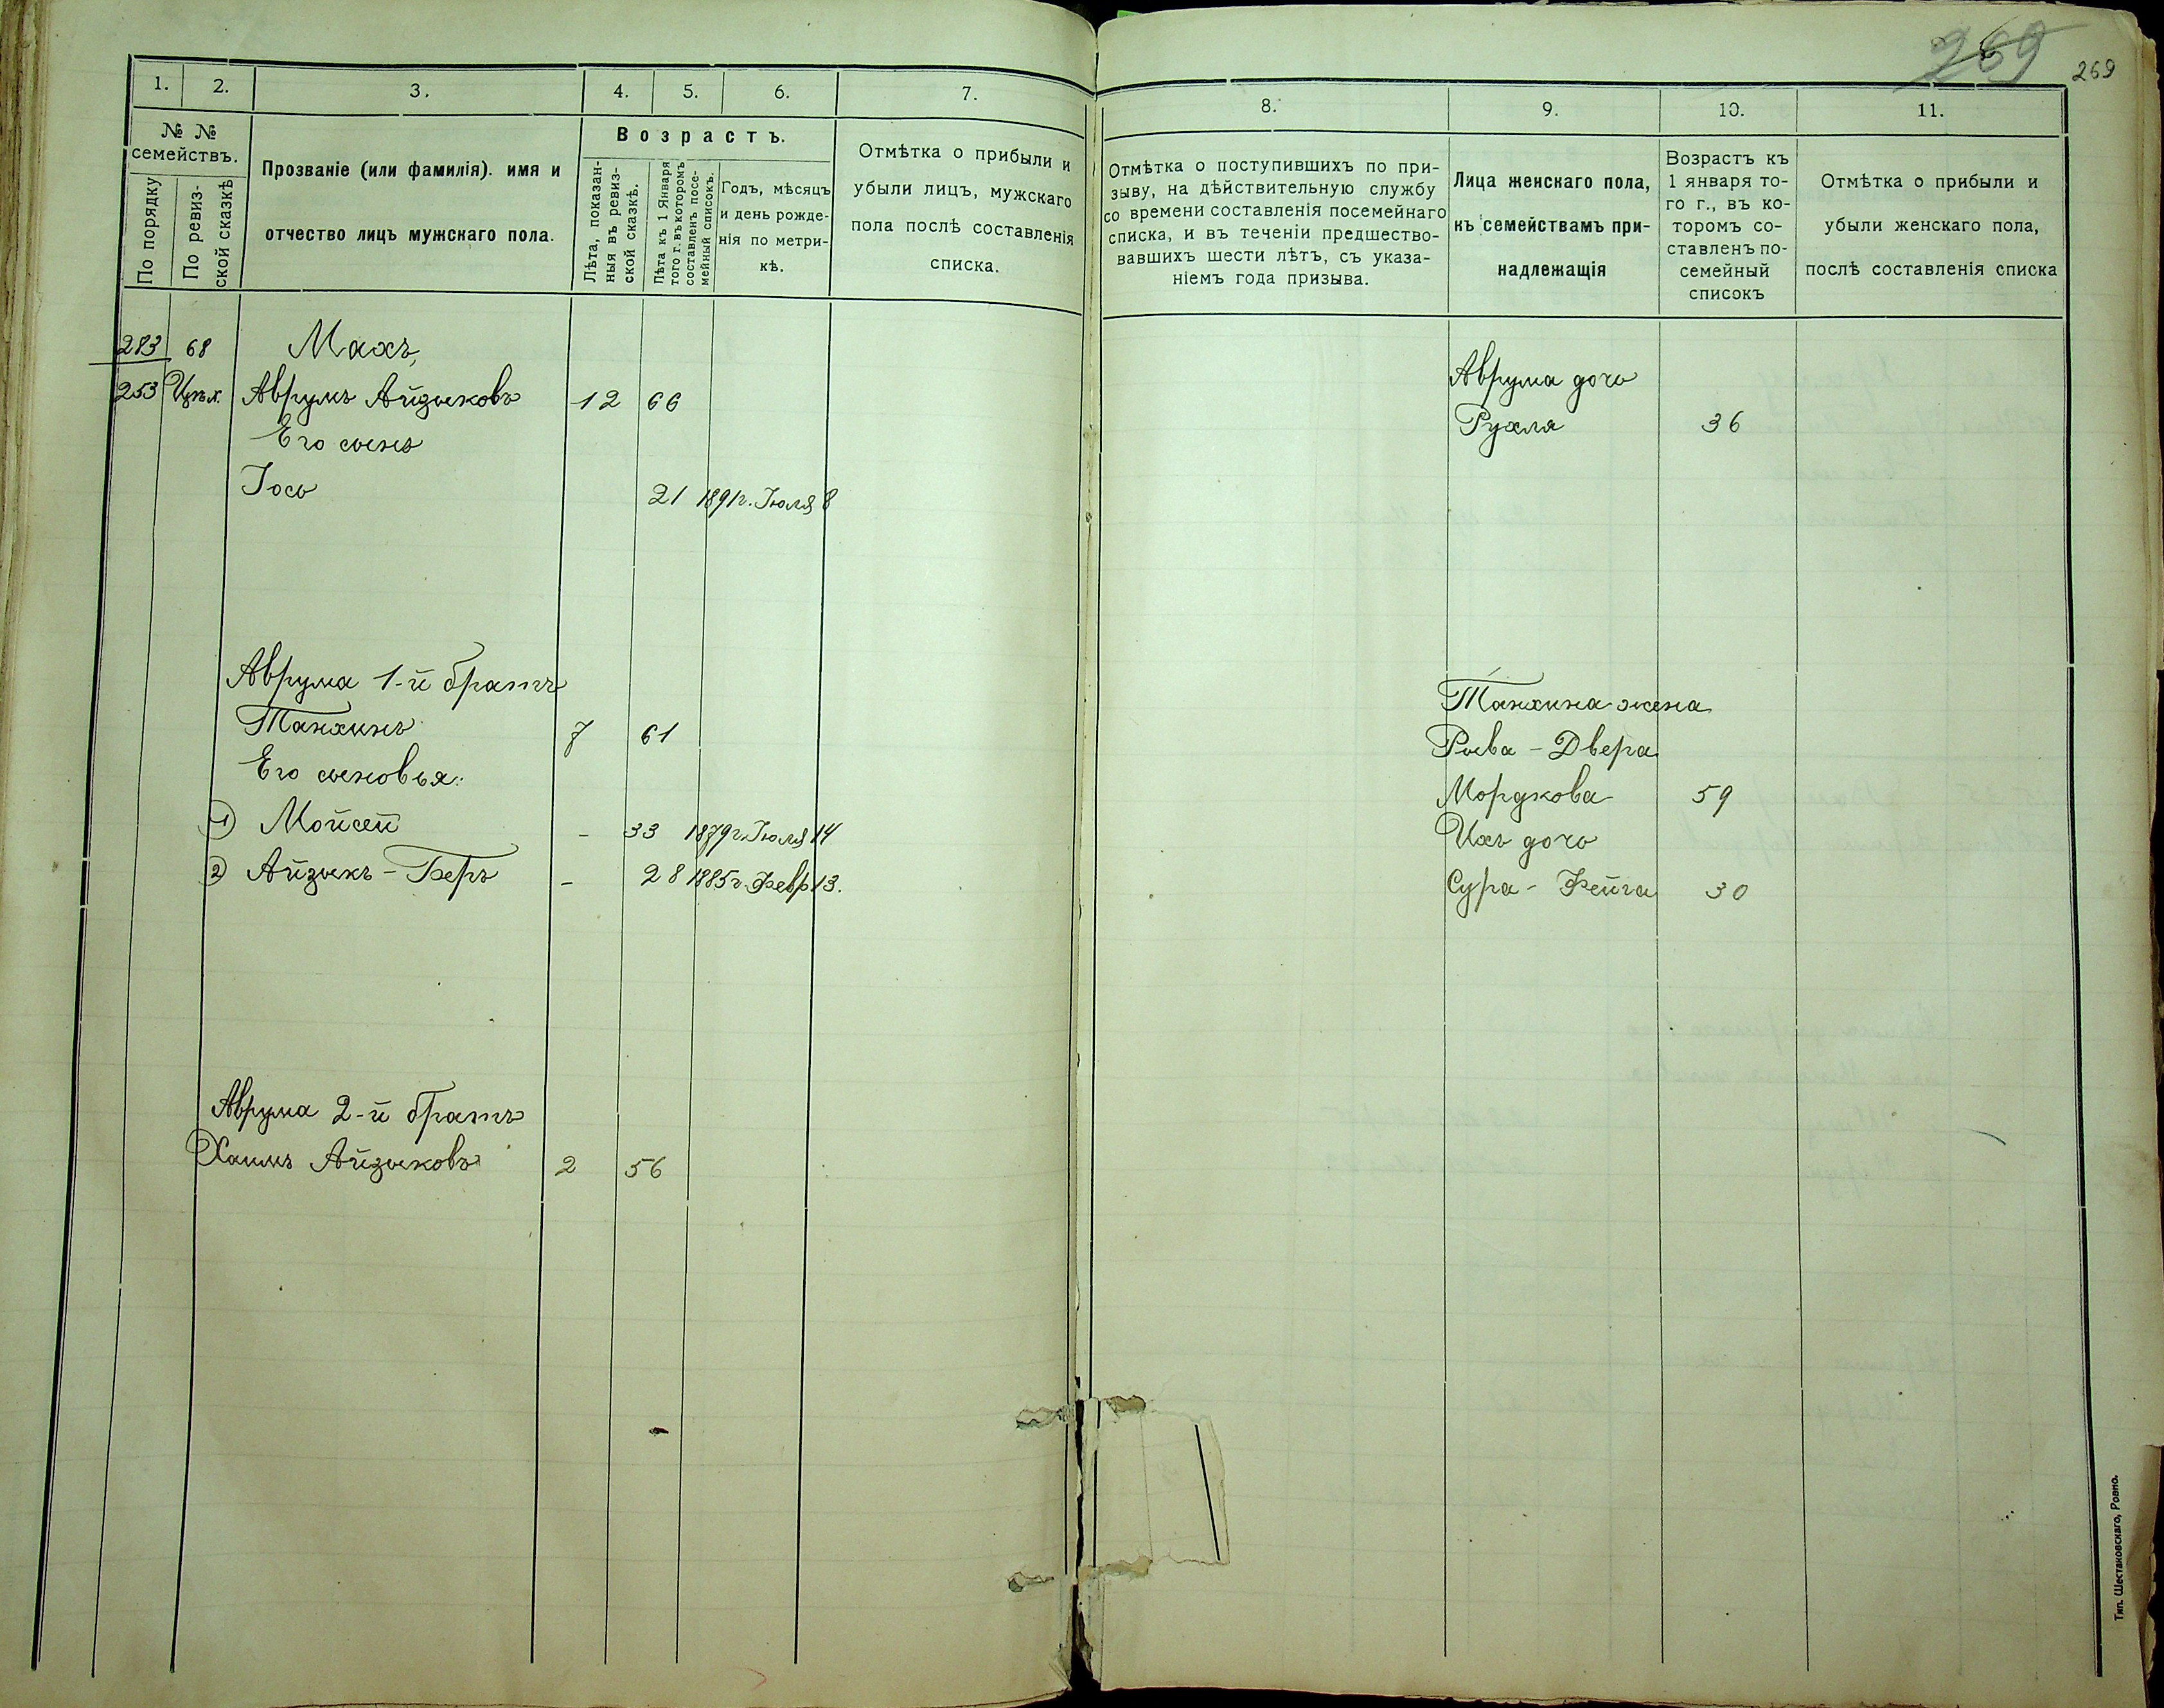 269
269
1.
2.
3.
4.
5.
6.
7.
№ №
семействъ.
По порядку
По ревиз-
ской сказкѣ
Прозваніе (или фамилія). имя и
отчество лицъ мужскаго пола.
Возрастъ.
Лѣта, показан-
ныя въ ревиз-
ской сказкѣ.
Лѣта къ 1 Января
того г. въ которомъ
составленъ посе-
мейный списокъ.
Годъ, мѣсяцъ
и день рожде-
нія по метри-
кѣ.
Отмѣтка о прибыли и
убыли лицъ, мужскаго
пола послѣ составленія
списка.
283 68 Махъ,
253 Аврумъ Айзыковъ 12 66
Его сынъ
Іось 21 1891г. Іюля 8
Аврума 1-й братъ
Танхинъ 7 61
Его сыновья:
1) Мойсей - 33 1879г. Іюля 14
2) Айзыкъ - Беръ - 28 1885г. Февр 13.
Аврума 2-й братъ
Хаимъ Айзыковъ 2 56
8.
9.
10.
11.
Отмѣтка о поступившихъ по при-
зыву, на дѣйствительную службу
со времени составленія посемейнаго
списка, и въ теченіи предшество-
вавшихъ шести лѣтъ, съ указа-
ніемъ года призыва.
Лица женскаго пола,
къ семействамъ при-
надлежащія
Возрастъ къ
1 января то-
го г., въ ко-
торомъ со-
ставленъ по-
семейный
списокъ
Отмѣтка о прибыли и
убыли женскаго пола,
послѣ составленія списка
Аврума дочь
Рухля 36
Танхина жена
Рыва - Двера
Мордкова 59
Ихъ дочь
Сура - Фейга 30
Тип. Шестаковскаго, Ровно.